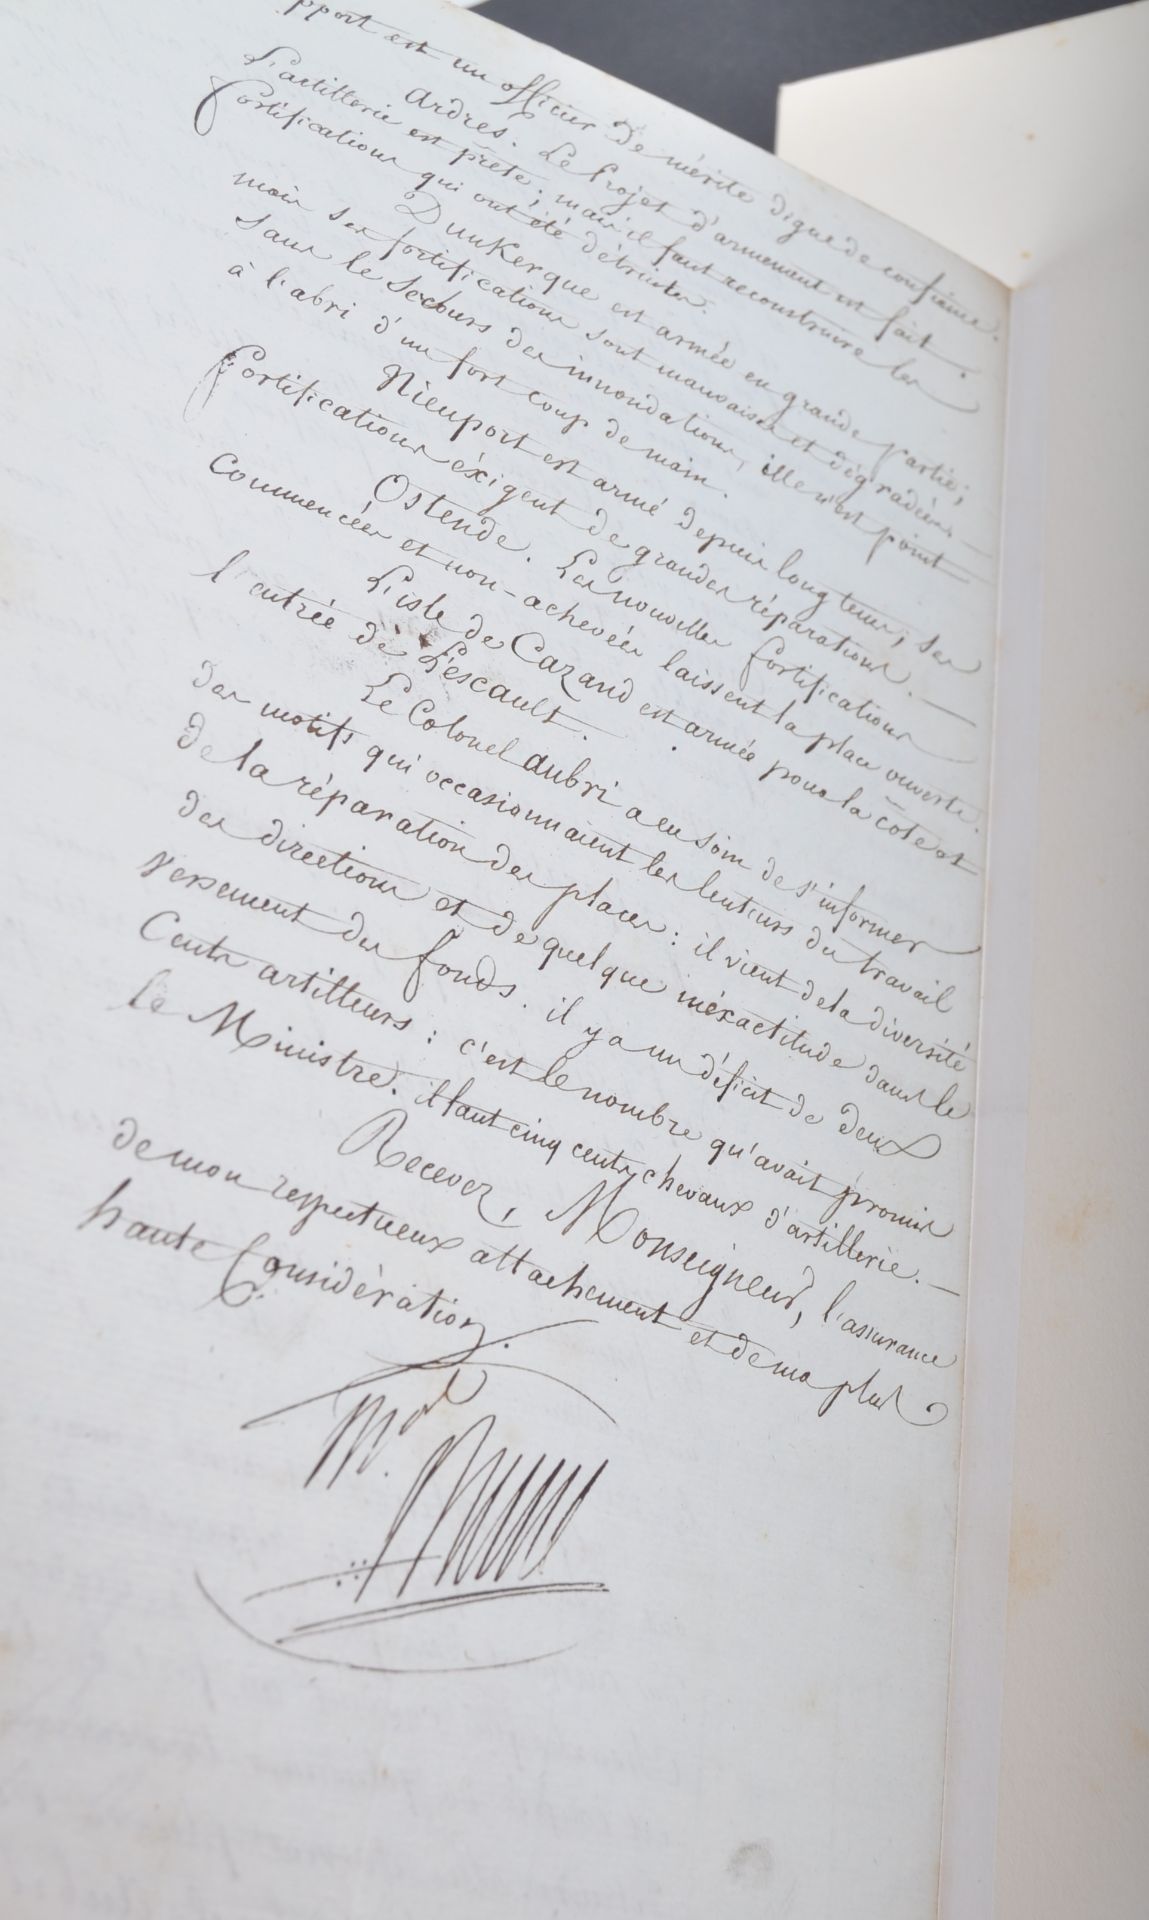 pport est un officier de mérite digne de confiance.
Ardres. Le Projet d'armement est fait.
L'artillerie est prête; mais il faut reconstruire les
fortifications qui ont été détruites.
Dunkerque est armée en grande partie;
mais ses fortifications sont mauvaises et dégradées. —
Sans le Secours des innondations, elle n'est point
à l'abri d'un fort coup de main.
Nieuport est armé depuis longtems; ses
fortifications éxigent de grandes réparations. —
Ostende. Les nouvelles fortifications
commencées et non-achevées laissent la place ouverte.
L'isle de Cazand est armée pour la côte et
l'entrée de L'escault.
Le Colonel aubri a eu soin de s'informer
des motifs qui occasionnaient les lenteurs du travail
de la réparation des places: il vient de la diversité
des directions et de quelque inéxactitude dans le
versement des fonds. il y a un déficit de deux
Cents artilleurs: c'est le nombre qu'avait promis
le Ministre. il faut cinq cents chevaux d'artillerie. —
Recevez, Monseigneur, l'assurance
de mon respectueux attachement et de ma plus
haute Considération.
Mal. Brune